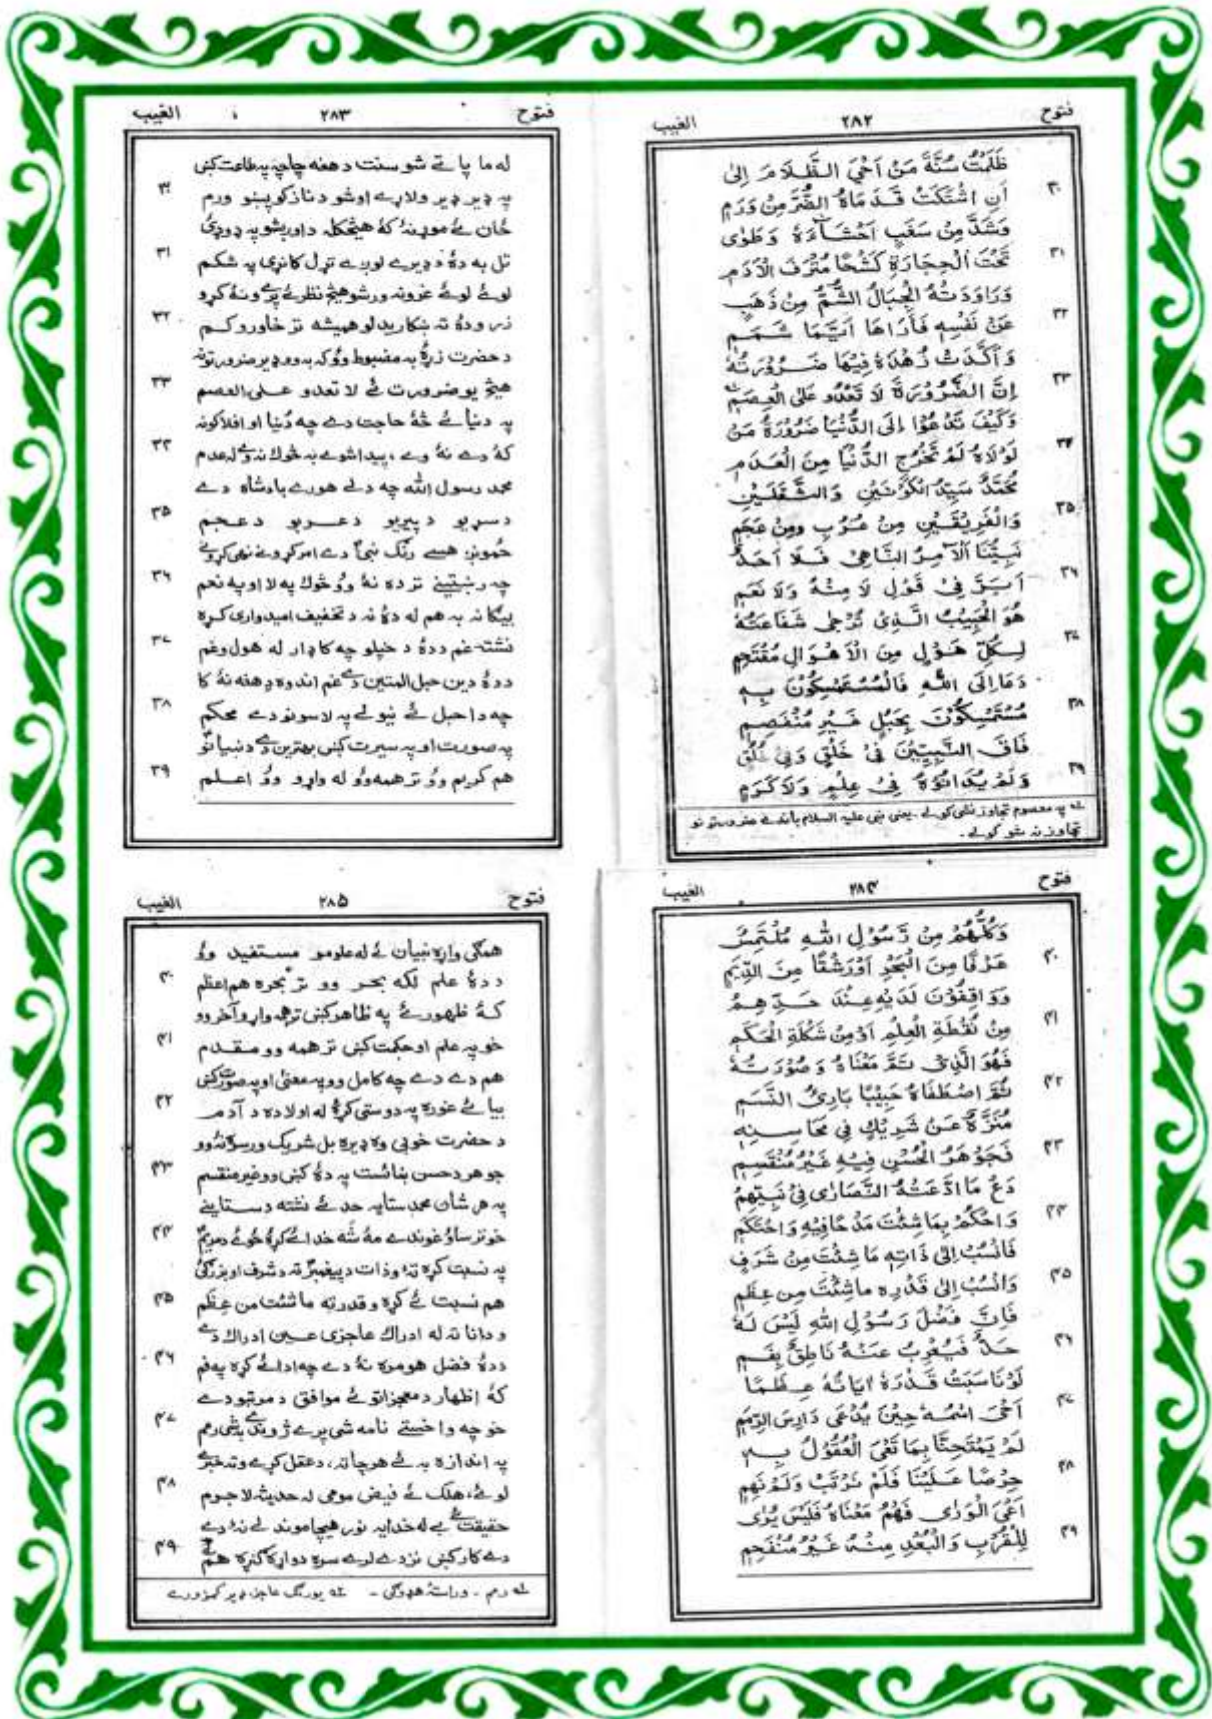 فتوح ٢٨٢ الغيب
ظَلَمْتُ سُنَّةَ مَنْ اَحْيَ الظَّلَامَ اِلىٰ
اَنِ اشْتَكَتْ قَدَمَاهُ الضُّرَّ مِنْ وَرَمٖ ٣٠
وَشَدَّ مِنْ سَغَبٍ اَحْشَآءَهٗ وَطَوٰى
تَحْتَ الْحِجَارَةِ كَشْحًا مُتْرَفَ الْاَدَمٖ ٣١
وَرَاوَدَتْهُ الْجِبَالُ الشُّمُّ مِنْ ذَهَبٍ
عَنْ نَفْسِهٖ فَاَرَاهَا اَيَّمَا شَمَمٖ ٣٢
وَاَكَّدَتْ زُهْدَهٗ فِيْهَا ضَرُوْرَتُهٗ
اِنَّ الضَّرُوْرَةَ لَا تَعْدُو عَلَى الْعِصَمٖ ٣٣
وَكَيْفَ تَدْعُوْا اِلَى الدُّنْيَا ضَرُوْرَةُ مَنْ
لَوْلَاهُ لَمْ تَخْرُجِ الدُّنْيَا مِنَ الْعَدَمٖ ٣٤
مُحَمَّدٌ سَيِّدُ الْكَوْنَيْنِ وَالثَّقَلَيْنِ
وَالْفَرِيْقَيْنِ مِنْ عُرْبٍ وَمِنْ عَجَمٖ ٣٥
نَبِيُّنَا الْاٰمِرُ النَّاهِيْ فَلَا اَحَدٌ
اَبَرَّ فِيْ قَوْلِ لَا مِنْهُ وَلَا نَعَمٖ ٣٦
هُوَ الْحَبِيْبُ الَّذِيْ تُرْجٰى شَفَاعَتُهٗ
لِكُلِّ هَوْلٍ مِنَ الْاَهْوَالِ مُقْتَحِمٖ ٣٧
دَعَا اِلَى اللّٰهِ فَالْمُسْتَمْسِكُوْنَ بِهٖ
مُسْتَمْسِكُوْنَ بِحَبْلٍ غَيْرِ مُنْفَصِمٖ ٣٨
فَاقَ النَّبِيّٖنَ فِيْ خَلْقٍ وَفِيْ خُلُقٍ
وَلَمْ يُدَانُوْهُ فِيْ عِلْمٍ وَلَا كَرَمٖ ٣٩
لـه په معصوم تجاوز نشى كولے۔ يعنى نبى عليه السلام باندے ضرورتونو
تجاوز نه شو كولے۔
فتوح ٢٨٣ الغيب
له ما پاتے شو سنت د هغه چاچه په طاعت كښ
په ډير ډير ولاړے اوشو د نازكو پښو ورم ٣٠
ځان ئے موړ نۀ كۀ هيڅكله د اوربشو په ډوډۍ
تل به دۀ د ډيرے لوږے تړل كانړى په شكم ٣١
لوئے لوئے غرونه ورشو هيڅ نظر ئے پرے ونۀ كړو
زر ودۀ ته ښكاريدلو هميشه تر خاورو كم ٣٢
د حضرت زړۀ به مضبوط وۀ كه به وو ډير ضرورتونه
هيڅ يو ضرورت ئے لا تعدو على العصم ٣٣
په دنيا ئے څۀ حاجت دے چه دُنيا او افلاكونه
كۀ دے نۀ وے، پيدا شوے به څوك نه وے له عدم ٣٤
محمد رسول الله چه د لے هورے بادشاه دے
د سړيو د پيريو د عربو د عجم ٣٥
ځمونږ هسے رنګ نبىؐ دے امر كړونے نهى كړونے
چه رښتينے تر ده نۀ وو څوك په لا او په نعم ٣٦
بيګانه به هم له دۀ نه د تخفيف اميدوارى كړه
نشته غم د دۀ د خپلو چه كا ډار له هول وغم ٣٧
د دۀ دين حبل المتين دے غم اندوه د هغه نۀ كا
چه دا حبل ئے نيولے په لاسونو دے محكم ٣٨
په صورت او په سيرت كښ بهترين دے د نبيانو
هم كريم وو تر همه وو له واړو وو اعلم ٣٩
فتوح ٢٨٤ الغيب
وَكُلُّهُمْ مِنْ رَّسُوْلِ اللّٰهِ مُلْتَمِسٌ
غَرْفًا مِنَ الْبَحْرِ اَوْ رَشْفًا مِنَ الدِّيَمٖ ٤٠
وَوَاقِفُوْنَ لَدَيْهِ عِنْدَ حَدِّهِمُ
مِنْ نُقْطَةِ الْعِلْمِ اَوْ مِنْ شَكْلَةِ الْحِكَمٖ ٤١
فَهُوَ الَّذِيْ تَمَّ مَعْنَاهُ وَصُوْرَتُهٗ
ثُمَّ اصْطَفَاهُ حَبِيْبًا بَارِئُ النَّسَمٖ ٤٢
مُنَزَّهٌ عَنْ شَرِيْكٍ فِيْ مَحَاسِنِهٖ
فَجَوْهَرُ الْحُسْنِ فِيْهِ غَيْرُ مُنْقَسِمٖ ٤٣
دَعْ مَا ادَّعَتْهُ النَّصَارٰى فِيْ نَبِيِّهِمُ
وَاحْكُمْ بِمَا شِئْتَ مَدْحًا فِيْهِ وَاحْتَكِمٖ ٤٤
فَانْسُبْ اِلىٰ ذَاتِهٖ مَا شِئْتَ مِنْ شَرَفٍ
وَانْسُبْ اِلىٰ قَدْرِهٖ مَا شِئْتَ مِنْ عِظَمٖ ٤٥
فَاِنَّ فَضْلَ رَسُوْلِ اللّٰهِ لَيْسَ لَهٗ
حَدٌّ فَيُعْرِبَ عَنْهُ نَاطِقٌ بِفَمٖ ٤٦
لَوْ نَاسَبَتْ قَدْرَهٗ اٰيَاتُهٗ عِظَمًا
اَحْىَ اسْمُهٗ حِيْنَ يُدْعٰى دَارِسَ الرِّمَمٖ ٤٧
لَمْ يَمْتَحِنَّا بِمَا تَعْىَ الْعُقُوْلُ بِهٖ
حِرْصًا عَلَيْنَا فَلَمْ نَرْتَبْ وَلَمْ نَهِمٖ ٤٨
اَعْىَ الْوَرٰى فَهْمُ مَعْنَاهُ فَلَيْسَ يُرٰى
لِلْقُرْبِ وَالْبُعْدِ مِنْهُ غَيْرُ مُنْفَحِمٖ ٤٩
فتوح ٢٨٥ الغيب
همګى واړه نبيان ئے له علومو مستفيد وو
د دۀ علم لكه بحر وو تر بحره هم اعظم ٤٠
كۀ ظهور ئے په ظاهر كښ تر همه واړو آخر وو
خو په علم او حكمت كښ تر همه وو مقدم ٤١
هم دے دے چه كامل وو په معنى او په صورت كښ
بيا ئے غوره په دوستى كړۀ له اولاده د آدم ٤٢
د حضرت خوبى وه ډيره بل شريك ورسره نۀ وو
جوهر د حسن ښائست په دۀ كښ وو غير منقسم ٤٣
په هر شان محمد ستايه حد ئے نشته د ستاينے
خو ترساؤ غوندے مۀ شه خدائے كړۀ ځوئے د مريم ٤٤
په نسبت كړه تۀ و ذات د پيغمبرؐ ته د شرف او بزرګۍ
هم نسبت ئے كړه و قدر ته ما شئت من عظم ٤٥
و دانا ته له ادراك عاجزى عين ادراك دے
د دۀ فضل هومره نۀ دے چه ادا ئے كړه په فم ٤٦
كۀ اظهار د معجزاتو ئے موافق د مرتبو دے
خو چه واخستے نامه شى پرے ژوندے به شى رمم ٤٧
په اندازه به ئے هر چاته، د عقل كړے وته خبرے
لوئے، هلك ئے فيض مومى له حديثه لاجرم ٤٨
حقيقت ئے بے له خدايه نور هيچا موندلے نۀ دے
دے كار كښ نزدے لرے سره دواړه ګنړه هم ٤٩
لـه رمم۔ وراستۀ هډوكى۔